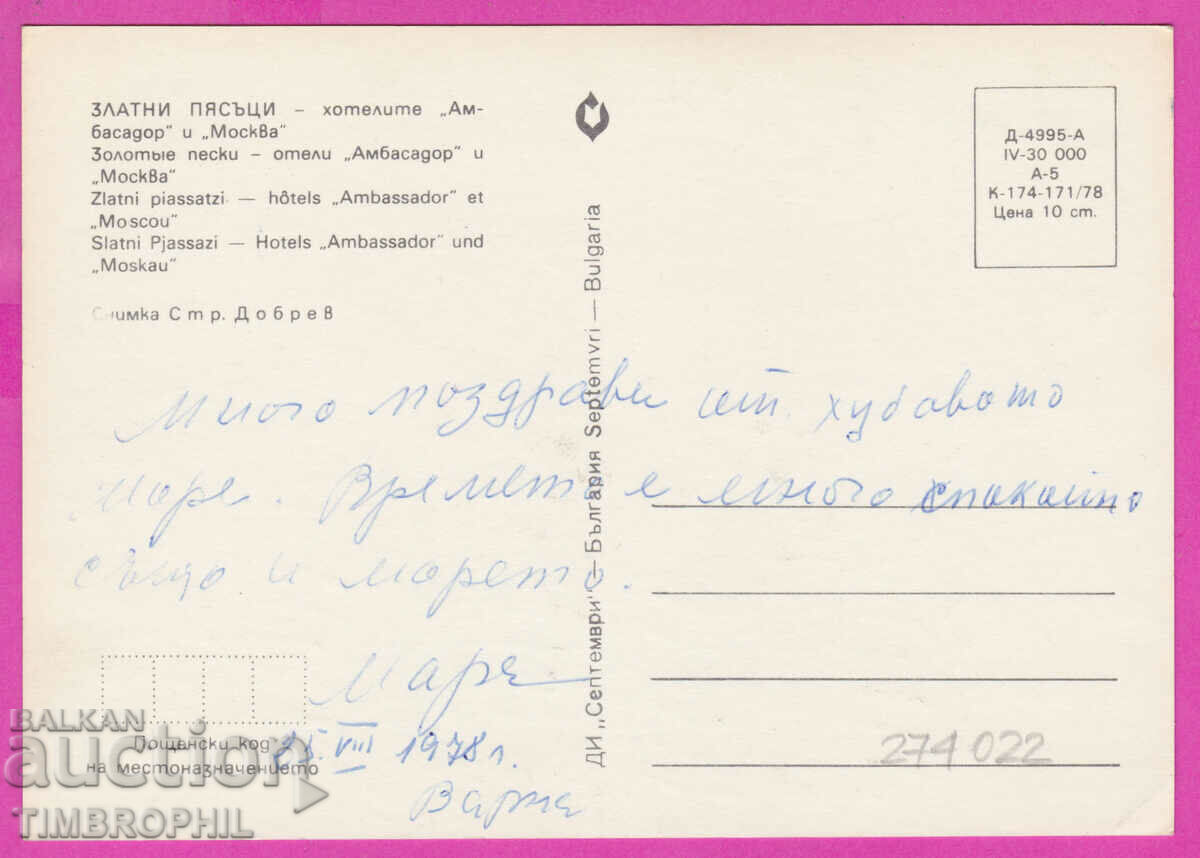 ЗЛАТНИ ПЯСЪЦИ – хотелите „Ам-
басадор" и „Москва"
Золотые пески – отели „Амбасадор" и
„Москва"
Zlatni piassatzi — hôtels „Ambassador" et
„Moscou"
Slatni Pjassazi — Hotels „Ambassador" und
„Moskau"
Снимка Стр. Добрев
Д-4995-А
IV-30 000
А-5
К-174-171/78
Цена 10 ст.
ДИ „Септември" — България Septemvri — Bulgaria
Много поздрави от хубавото
море. Времето е много спокойно
също и морето.
Мара
25 VIII 1978 г.
Варна
Пощенски код
на местоназначението
274022
BALKAN
auction
TIMBROPHIL